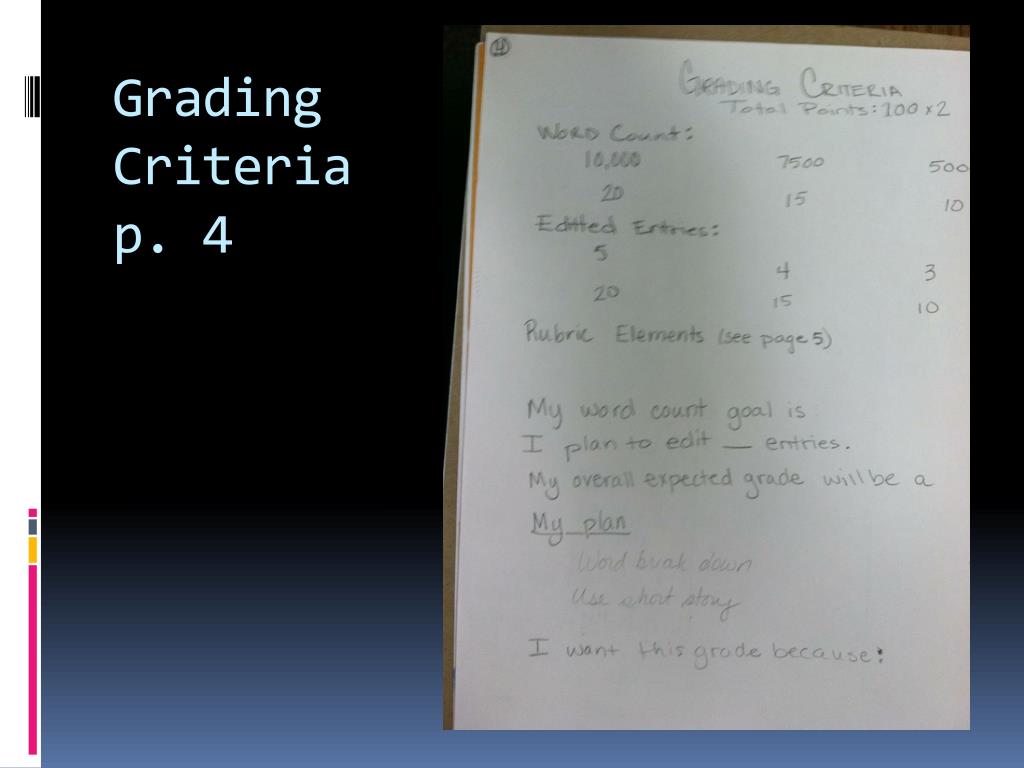 Grading
Criteria
p. 4
4
GRADING CRITERIA
Total Points: 100 x 2
WORD Count:
10,000 7500 500
20 15 10
Edited Entries:
5
4 3
20 15 10
Rubric Elements (see page 5)
My word count goal is
I plan to edit __ entries.
My overall expected grade will be a
My plan
Word break down
Use short story
I want this grade because: